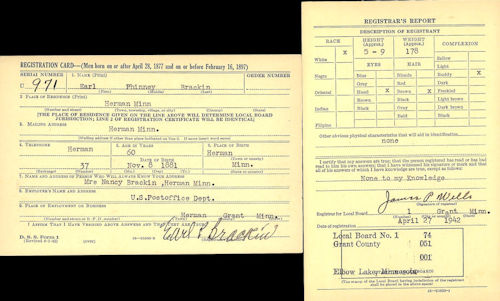 REGISTRATION CARD—(Men born on or after April 28, 1877 and on or before February 16, 1897)
SERIAL NUMBER 1. NAME (Print) ORDER NUMBER
U 971 Earl Phinney Brackin
(First) (Middle) (Last)
2. PLACE OF RESIDENCE (Print)
Herman Minn
(Number and street) (Town, township, village, or city) (County) (State)
[THE PLACE OF RESIDENCE GIVEN ON THE LINE ABOVE WILL DETERMINE LOCAL BOARD
JURISDICTION; LINE 2 OF REGISTRATION CERTIFICATE WILL BE IDENTICAL]
3. MAILING ADDRESS
Herman Minn.
4. TELEPHONE 5. AGE IN YEARS 6. PLACE OF BIRTH
Herman 60 Herman
DATE OF BIRTH
37 Nov. 8 1881 Minn.
7. NAME AND ADDRESS OF PERSON WHO WILL ALWAYS KNOW YOUR ADDRESS
Mrs Nancy Brackin ,Herman Minn.
8. EMPLOYER'S NAME AND ADDRESS
U.S.Postoffice Dept.
9. PLACE OF EMPLOYMENT OR BUSINESS
Herman Grant Minn.
I AFFIRM THAT I HAVE VERIFIED ABOVE ANSWERS AND THAT THEY ARE TRUE.
D. S. S. Form 1
Earl P Brackin
REGISTRAR'S REPORT
DESCRIPTION OF REGISTRANT
RACE HEIGHT (Approx.) WEIGHT (Approx.) COMPLEXION
White X 5 - 9 178 Sallow
EYES HAIR Light
Negro Blue Blonde Ruddy X
Gray Red Dark
Oriental Hazel X Brown X Freckled
Brown Black Light brown
Indian Black Gray Dark brown
Bald Black
Filipino
Other obvious physical characteristics that will aid in identification
none
I certify that my answers are true; that the person registered has read or has had read to him his own answers; that I have witnessed his signature or mark and that all of his answers of which I have knowledge are true, except as follows:
None to my Knowledge
James P. Wells
(Signature of registrar)
Registrar for Local Board 1 Grant Minn.
Date of registration April 27 1942
Local Board No. 1 74
Grant County 051
001
Elbow Lake, Minnesota
(The stamp of the Local Board having jurisdiction of the registrant shall be placed in the above space)